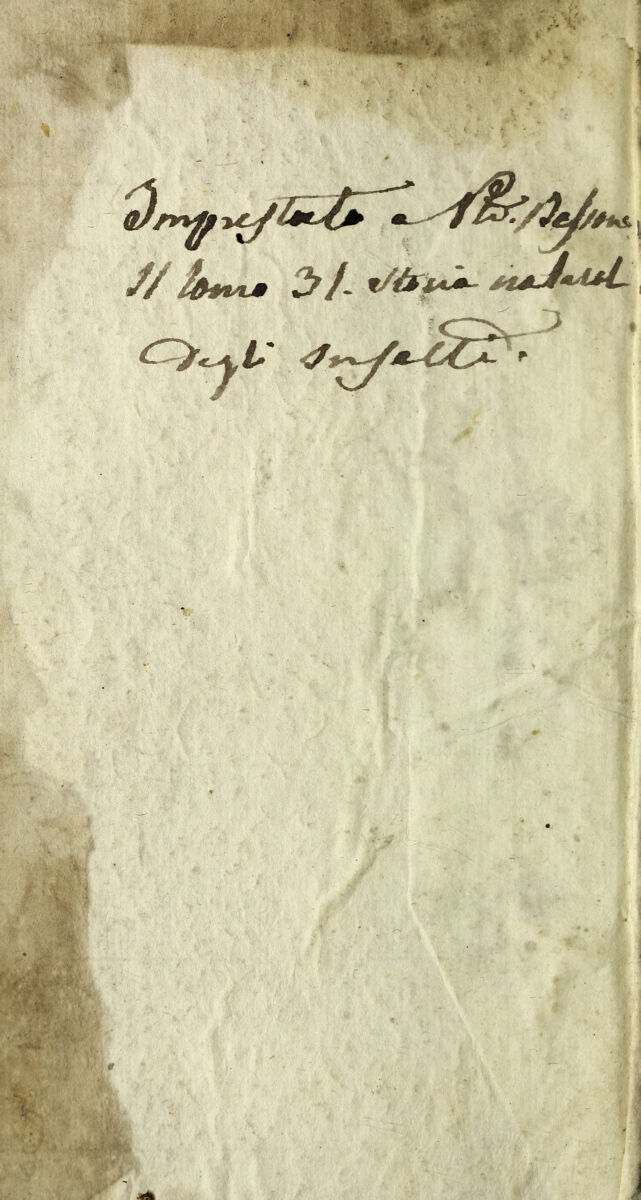 Imprestato a Bassone
Il tomo 31. storia natural
degli Insetti.